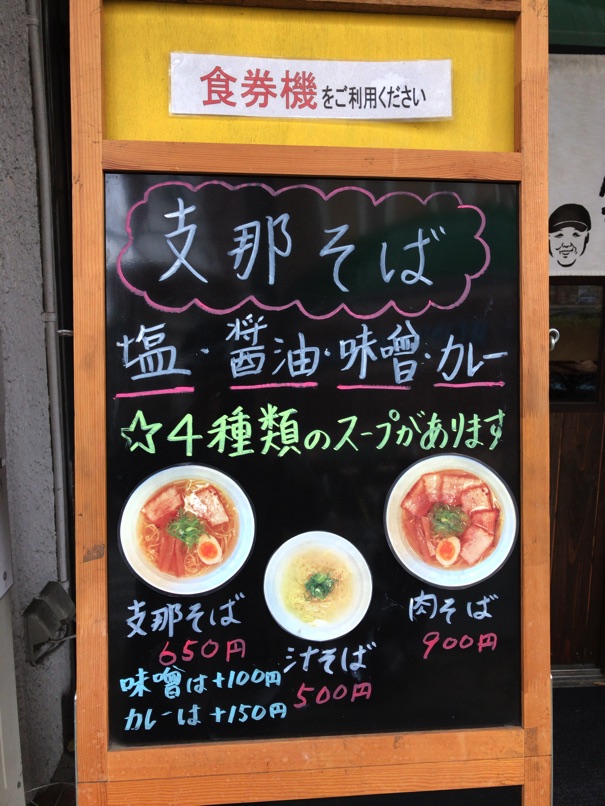 食券機をご利用ください
支那そば
塩・醤油・味噌・カレー
☆4種類のスープがあります
支那そば
650円
味噌は+100円
カレーは+150円
汁そば
500円
肉そば
900円